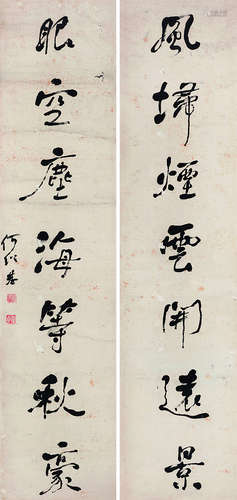 風埽煙雲開遠景
眼空塵海等秋豪
何紹基